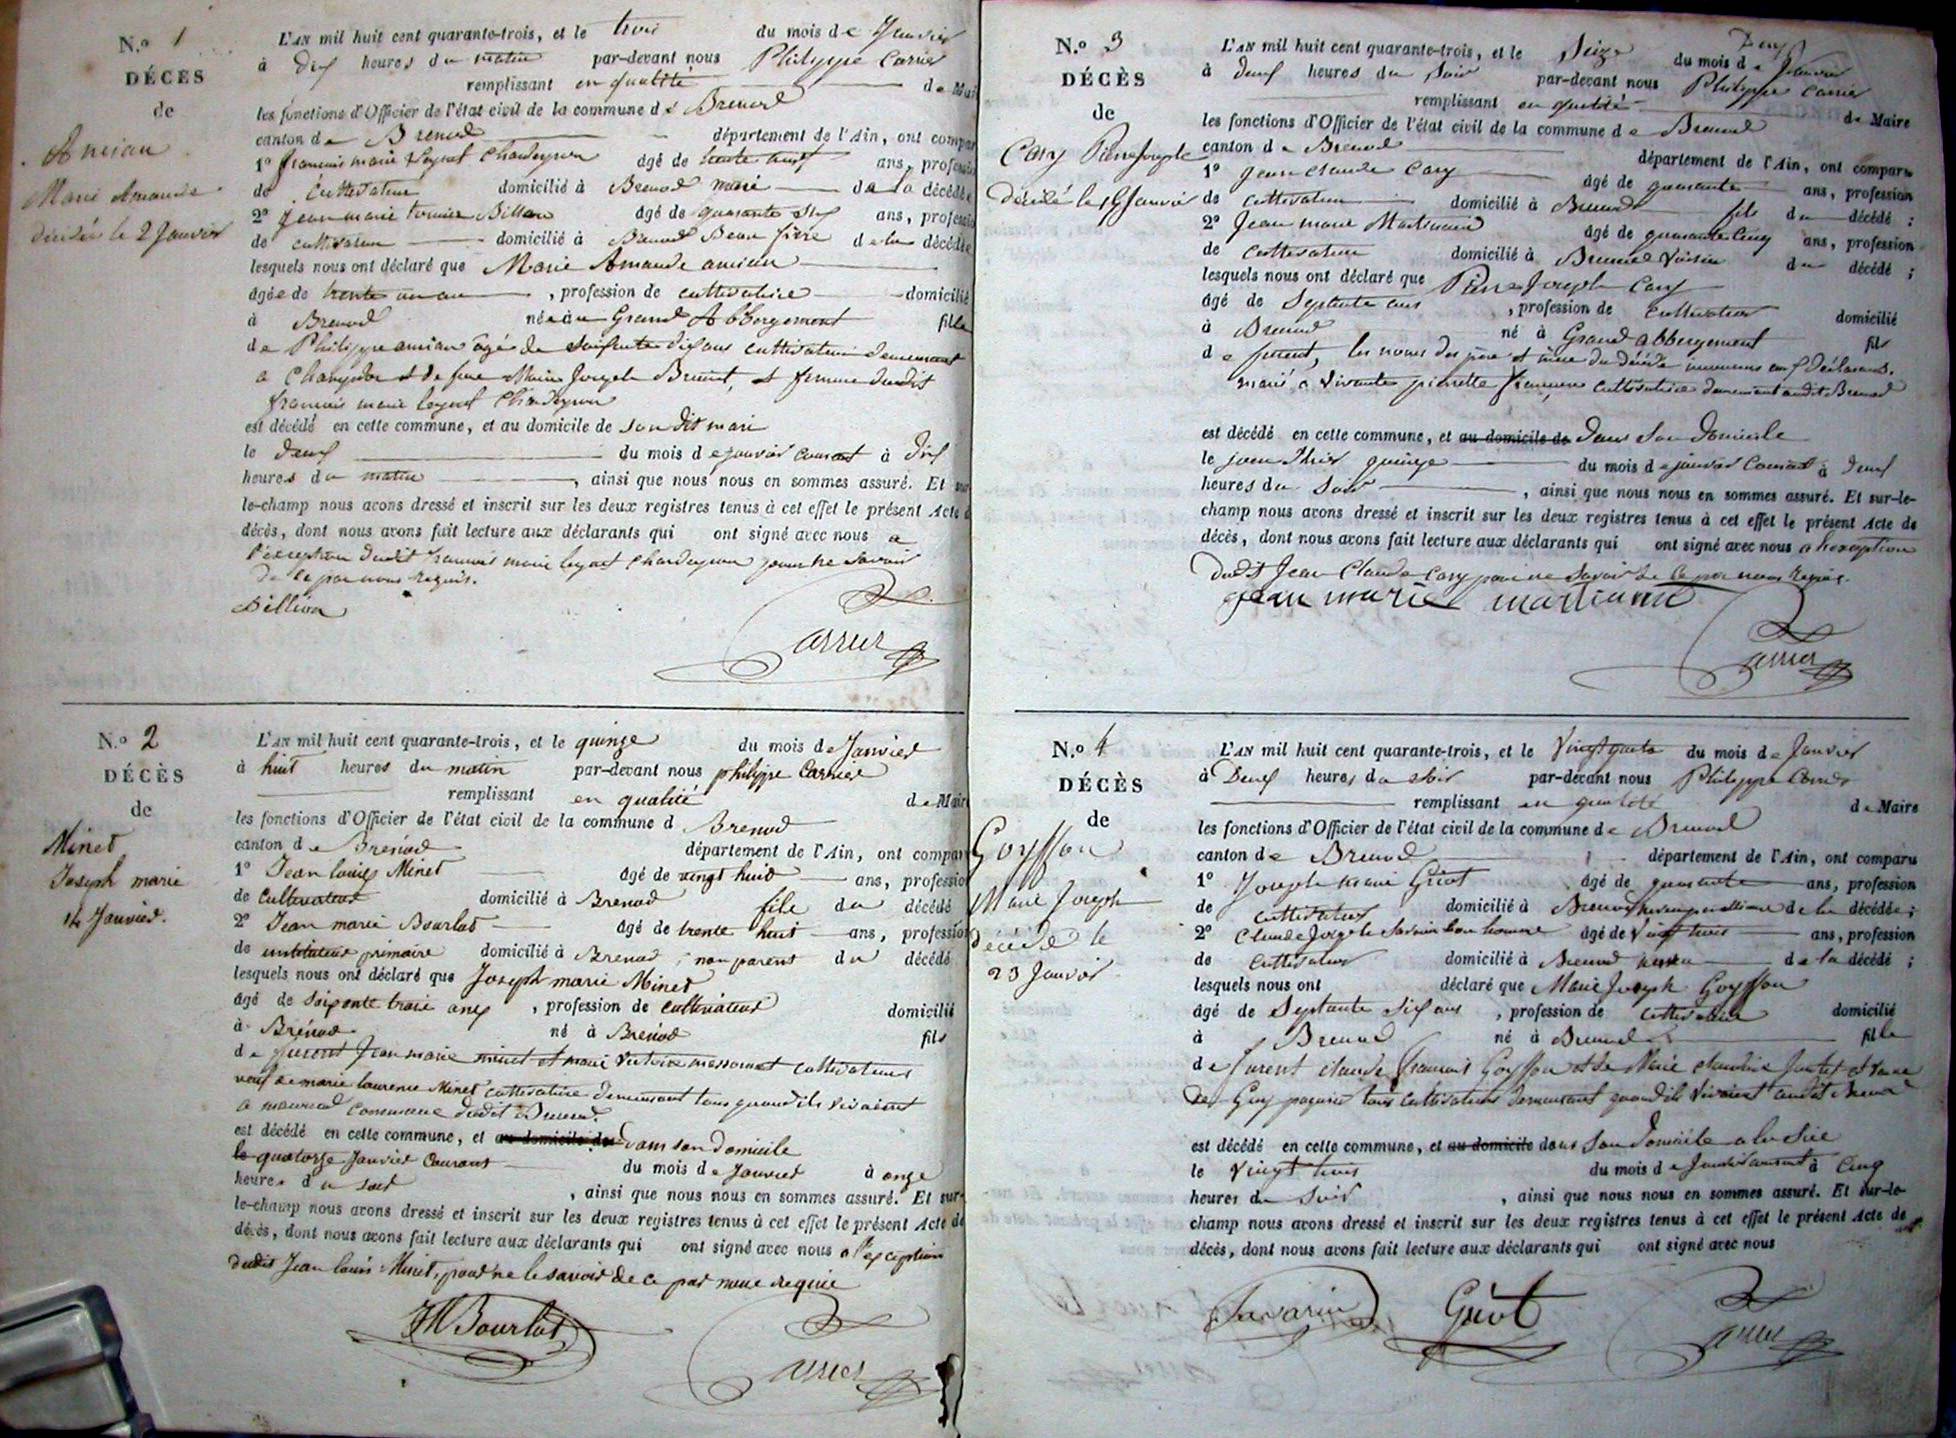 N.o 1
DÉCÈS
de
Amian
Marie Amande
décédée le 2 Janvier
L'AN mil huit cent quarante-trois, et le trois du mois de Janvier
à dix heures du matin par-devant nous Philippe Carrier
remplissant en qualité de Mai
les fonctions d'Officier de l'état civil de la commune de Brenod
canton de Brenod département de l'Ain, ont compar
1° françois marie Chardeyron âgé de trente ans, profession
de Cultivateur domicilié à Brenod mari de la décédée
2° Jean marie Billion âgé de quarante six ans, profession
de cultivateur domicilié à Brenod Beau frère de la décédée
lesquels nous ont déclaré que Marie Amande amian
âgée de trente un an, profession de cultivatrice domicilié
à Brenod née au Grand Abbergement fille
de Philippe amian âgé de soixante dix ans cultivateur demeurant
a Champdor et de feue Marie Joseph Brunet, et femme dudit
francois marie Chardeyron
est décédé en cette commune, et au domicile de son dit mari
le deux du mois de janvier courant à dix
heures du matin, ainsi que nous nous en sommes assuré. Et sur
le-champ nous avons dressé et inscrit sur les deux registres tenus à cet effet le présent Acte d
décès, dont nous avons fait lecture aux déclarants qui ont signé avec nous a
l'exception dudit francois marie Chardeyron pour ne savoir
de ce par nous requis.
Billion
Carrier
N.o 2
DÉCÈS
de
Minet
Joseph marie
14 Janvier.
L'AN mil huit cent quarante-trois, et le quinze du mois de Janvier
à huit heures du matin par-devant nous philippe Carrier
remplissant en qualité de Maire
les fonctions d'Officier de l'état civil de la commune d Brenod
canton de Brénod département de l'Ain, ont compar
1° Jean louis Minet âgé de vingt huit ans, profession
de Cultivateur domicilié à Brenod fils du décédé
2° Jean marie Bourlot âgé de trente huit ans, profession
de instituteur primaire domicilié à Brenod, non parent du décédé
lesquels nous ont déclaré que Joseph marie Minet
âgé de soixante trois ans, profession de cultivateur domicilié
à Brénod né à Brénod fils
de furent Jean marie minet et marie Victoire massonnet cultivateurs
veuf de marie laurence Minet cultivatrice demeurant tous quand ils vivaient
a commune dudit Brenod.
est décédé en cette commune, et au domicile de dans son domicile
le quatorze Janvier Courant du mois de Janvier à onze
heures du soir, ainsi que nous nous en sommes assuré. Et sur-
le-champ nous avons dressé et inscrit sur les deux registres tenus à cet effet le présent Acte de
décès, dont nous avons fait lecture aux déclarants qui ont signé avec nous a l'exception
dudit Jean louis Minet, pour ne le savoir de ce par nous requis
JM Bourlot
Carrier
N.o 3
DÉCÈS
de
Cary Pierre Joseph
décédé le 15 Janvier
L'AN mil huit cent quarante-trois, et le Seize du mois de Janvier
à deux heures du Soir par-devant nous Philippe Carrier
remplissant en qualité de Maire
les fonctions d'Officier de l'état civil de la commune de Brenod
canton de Brenod département de l'Ain, ont comparu
1° Jean Claude Cary âgé de quarante ans, profession
de cultivateur domicilié à Brenod fils du décédé ;
2° Jean marie Martinand âgé de quarante cinq ans, profession
de cultivateur domicilié à Brenod Voisin du décédé ;
lesquels nous ont déclaré que Pierre Joseph Cary
âgé de Septante ans, profession de Cultivateur domicilié
à Brenod né à Grand abbergement fils
de furent, les noms des père et mère du décédé inconnus aux déclarans.
marié a vivante pierrette cultivatrice demeurant audit Brenod
est décédé en cette commune, et au domicile de dans son domicile
le jour d'hier quinze du mois de janvier courant à deux
heures du Soir, ainsi que nous nous en sommes assuré. Et sur-le-
champ nous avons dressé et inscrit sur les deux registres tenus à cet effet le présent Acte de
décès, dont nous avons fait lecture aux déclarants qui ont signé avec nous a lexception
dudit Jean Claude Cary pour ne savoir de ce par nous requis.
jean marie martinand
Carrier
N.o 4
DÉCÈS
de
Goyffon
Marie Joseph
décédé le
23 Janvier
L'AN mil huit cent quarante-trois, et le Vingt quatre du mois de Janvier
à Deux heures du soir par-devant nous Philippe Carrier
remplissant en qualité de Maire
les fonctions d'Officier de l'état civil de la commune de Brenod
canton de Brenod département de l'Ain, ont comparu
1° Joseph marie Griot âgé de quarante ans, profession
de cultivateur domicilié à Brenod neveu par alliance de la décédée ;
2° Claude Joseph Savarin bon homme âgé de Vingt trois ans, profession
de cultivateur domicilié à Brenod neveu de la décédé ;
lesquels nous ont déclaré que Marie Joseph Goyffon
âgé de Septante six ans, profession de cultivateur domicilié
à Brenod né à Brenod fille
de furent claude francois Goyffon et de Marie claudine
tous cultivateurs demeurant quand ils vivaient audit Brenod
est décédé en cette commune, et au domicile dans son Domicile
le Vingt trois du mois de Janvier courant à Cinq
heures du Soir, ainsi que nous nous en sommes assuré. Et sur-le-
champ nous avons dressé et inscrit sur les deux registres tenus à cet effet le présent Acte de
décès, dont nous avons fait lecture aux déclarants qui ont signé avec nous
Savarin Griot Carrier